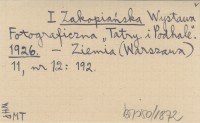 I Zakopiańska Wystawa
Fotograficzna „Tatry i Podhale".
1926. – Ziemia (Warszawa)
11, nr 12: 192.
MT